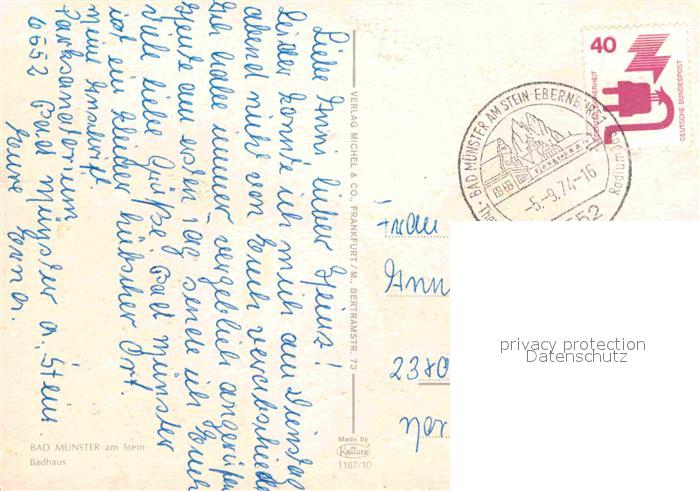 Liebe Anni, lieber Heinz!
Leider konnte ich mich am Dienstag
abend nicht von Euch verabschieden
Ich habe immer vergeblich angerufen
Heute am ersten Tag sende ich Euch
viele liebe Grüße. Bad Münster
ist ein kleiner hübscher Ort.
Meine Anschrift:
Parksanatorium
6552 Bad Münster a. Stein.
Eure
Erna.
BAD MÜNSTER am Stein
Badhaus
VERLAG MICHEL & CO., FRANKFURT/M., BERTRAMSTR. 73
Made by
KRÜGER
1187/10
40
DEUTSCHE BUNDESPOST
BAD MÜNSTER AM STEIN EBERNBURG
-5.-9.74-16
Radium
Frau
2380
privacy protection
Datenschutz